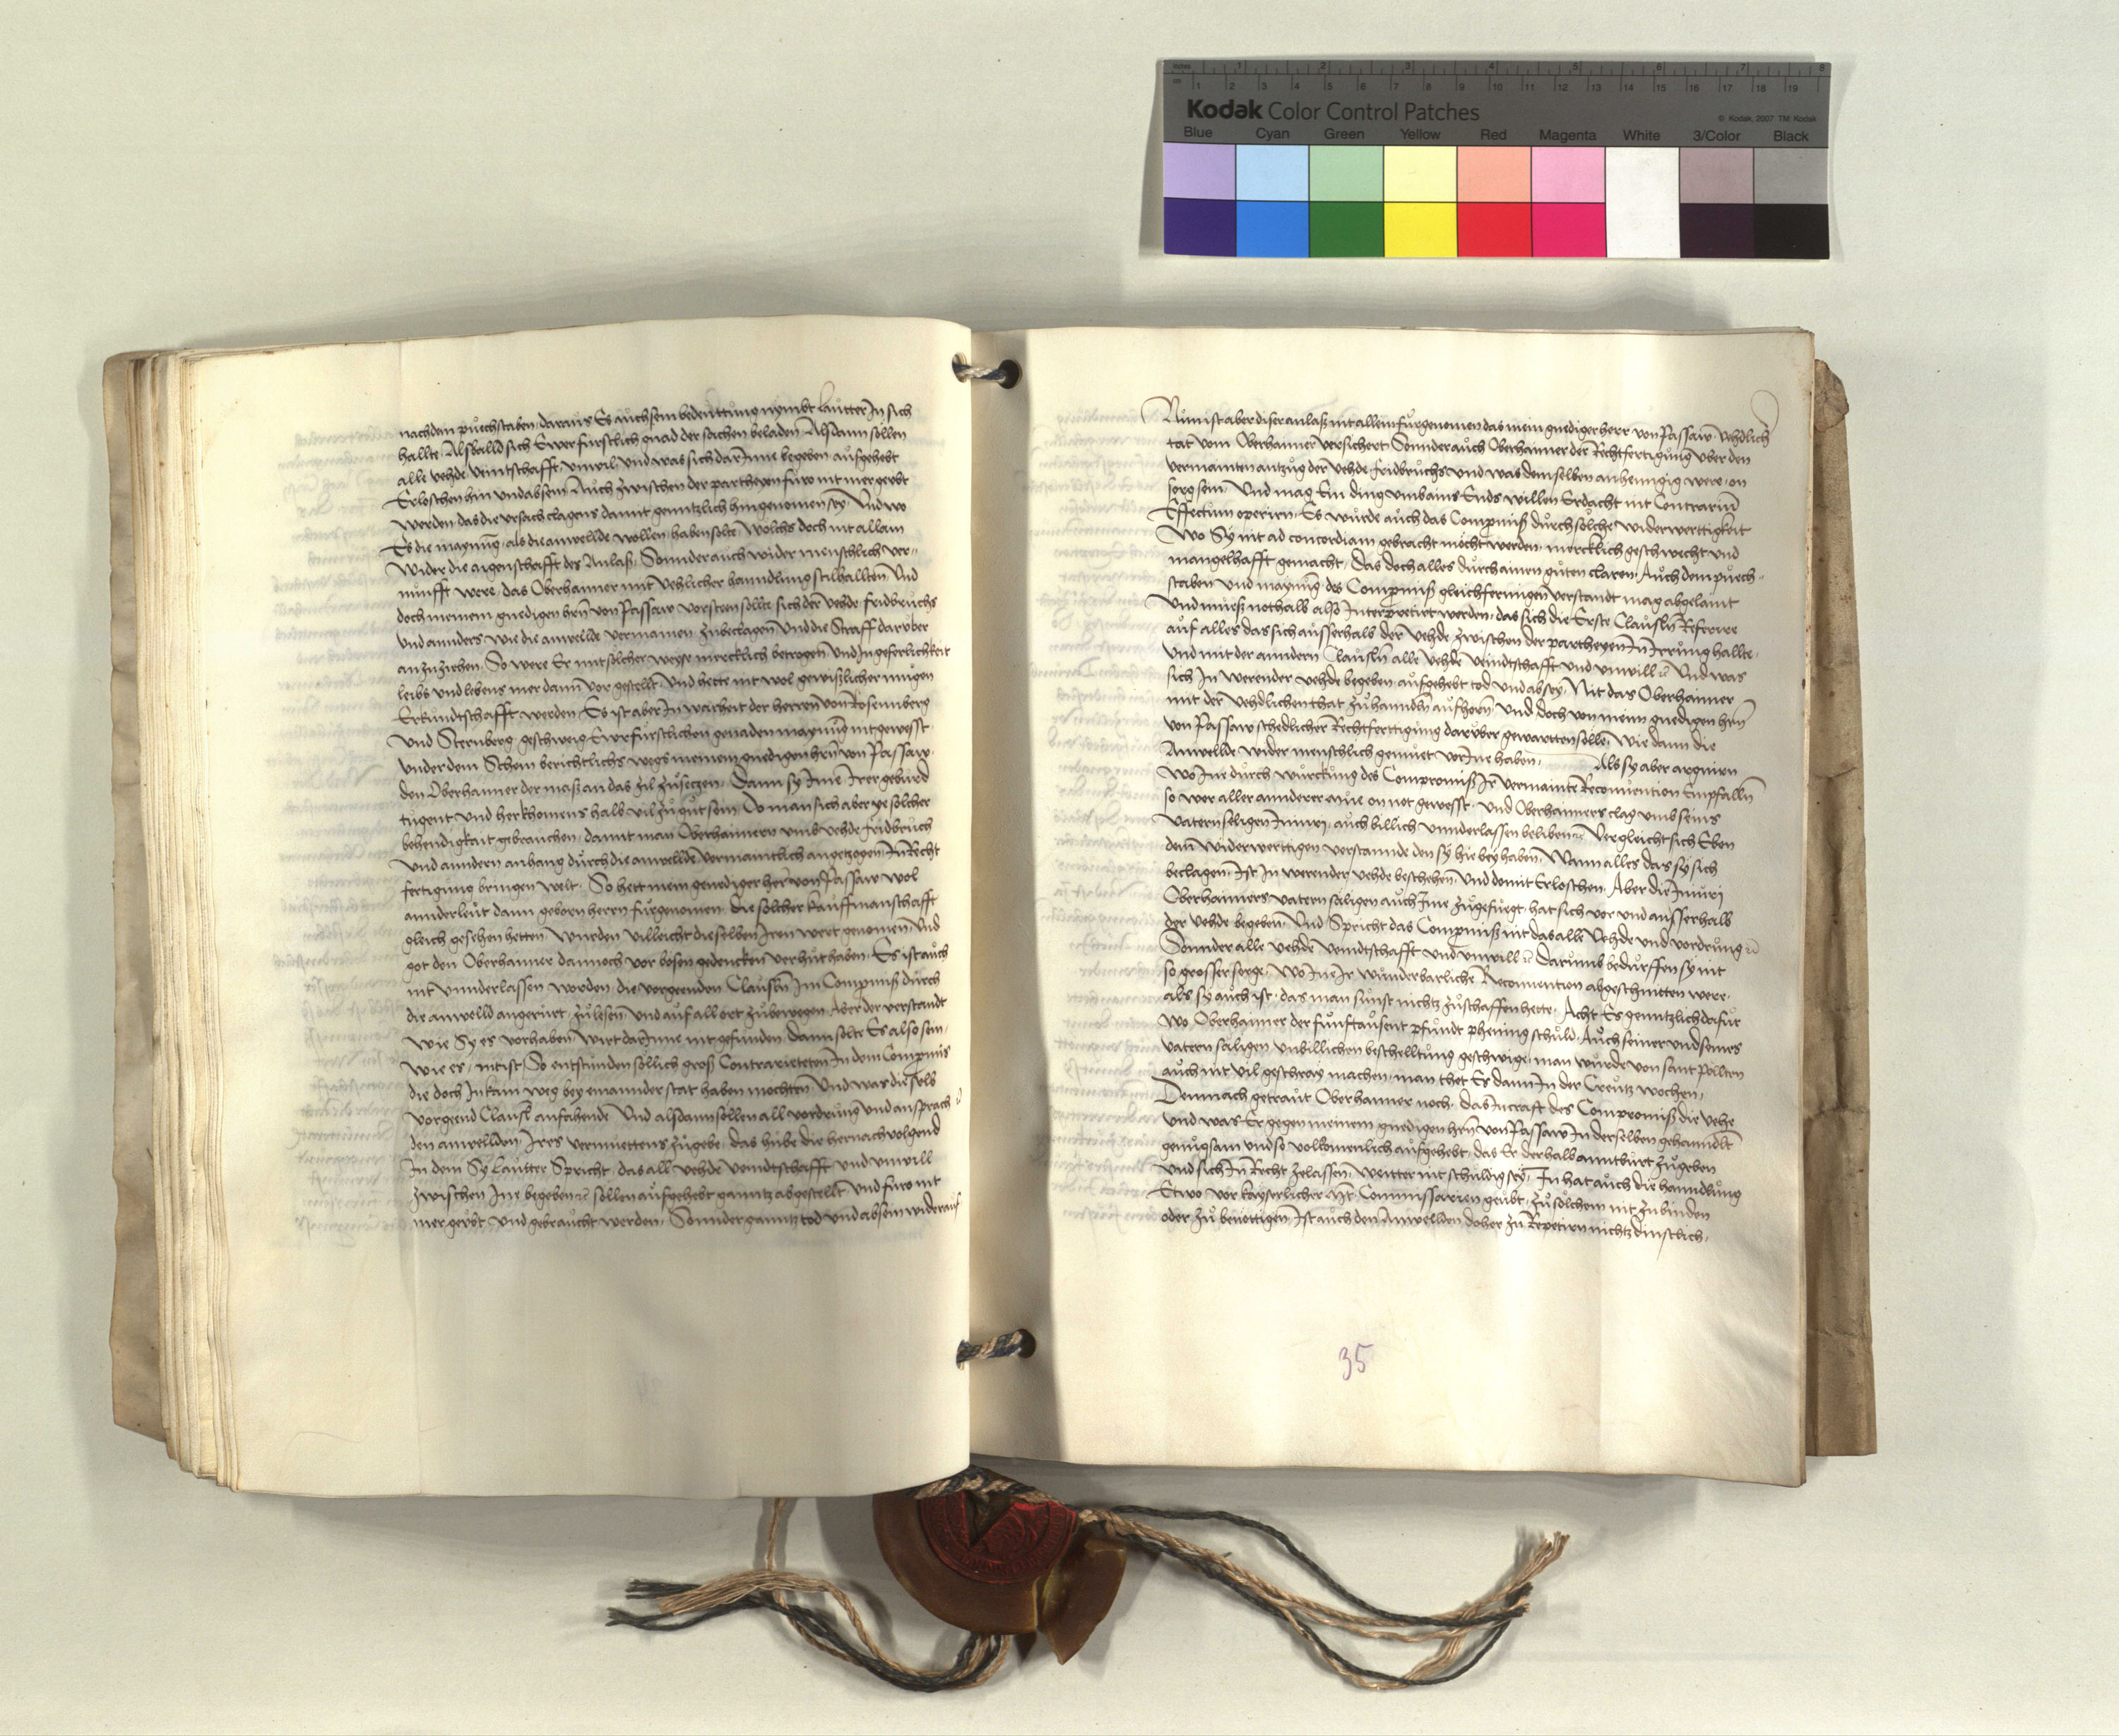 inches 1 2 3 4 5 6 7 8
cm 1 2 3 4 5 6 7 8 9 10 11 12 13 14 15 16 17 18 19
Kodak Color Control Patches © Kodak, 2007 TM: Kodak
Blue Cyan Green Yellow Red Magenta White 3/Color Black
nach dem půechstaben, daraus Es auch sein bedeuttung nymbt lautter In sich
hallte, Alsballd sich Ewer furstlich gnad der sachen beladen, Alsdann sollen
alle vehde veintschafft, unwil, und was sich darInne begeben aufgehebt
Erloschen hin und ab sein, Auch zwischen der partheyen furo nit mer geubt
werden, das die ursach clagens damit genntzlich hingenomen sey, Und wo
Es die maynūg, als die anwellde wollen, haben solte, Wölchs doch nit allain
wider die aigenschafft des Anlaß, Sonnder auch wider menschlich ver-
nunfft were, das Oberhaimer mit vehlicher hanndlung stilhallten, Und
doch meinem gnedigen hrn von Passaw vorsteen sollte sich der vehde fridbruchs
und annders wie die anwellde vermainen zubeclagen, Und die Straff darober
anzuziehen, So were Er mit solcher weyse mercklich betrogen, Und In geferlichkeit
leibs und lebens mer dann vor gestellt, Und hette nit wol gewißlicher mugen
Erkundtschafft werden, Es ist aber In warheit der herren von Rosennberg
und Sternberg, geschweig Ewr furstlichen genaden maynūg nit gewesst
under dem Schein berichtlichs wegs meinem gnedigen hrn von Passaw
den Oberhaimer der maß an das zil zůsetzen, Dann sy Irer geburd
tugent und herkhomens halb vil zů gůt sein, Do man sich aber ye solcher
behendigkait gebrauchen, damit man Oberhaimern umb vehde fridbruch
und anndern anhang durch die anwellde vermaintlich angezogen, In Recht
fertigung bringen welt, So hett mein genediger her von Passaw wol
annder leut dann geborn herrn furgenomen, die solcher kauffmanschafft
gleich gesehen hetten, Wurden villeicht dieselben Iren wert genomen, Und
got den Oberhaimer dannoch vor bosen gedencken verhut haben, Es ist auch
nit unnderlassen worden, die vorgeenden Clausln Im Compmiß durch
die anwelld angerurt, zu lesen, und auf all ort zubewegen, Aber der verstandt
Wie Sy es vorhaben, wirt darInne nit gefunden, dann solte Es also sein,
Wie es, nit ist, So entstunden sollich groß Contrarieteten In dem Compmis
die doch In kain weg bey einannder stat haben mochten, Und was dieselb
vorgeend Clausl anfahende, Und alsdann sollen all vordrung und ansprach
den anwellden, Ires vermuettens zugebe, das hube die hernachvolgend
In dem Sy Lautter Spricht, das all vehde veindtschafft und unwill
zwischen Ine begeben sollen aufgehebt ganntz abgestellt und furo nit
mer geubt und gebraucht werden, Sonnder ganntz tod und ab sein widerauf
Nun ist aber diser anlaß nit allein furgenomen das mein gnediger herr von Passaw vehdlich
tat vom Oberhaimer versichert, Sonnder auch Oberhaimer der Rechtfertigung uber den
vermainten antzug der vehde fridbruchs und was demselben anhenngig were, on
sorg sein, Und mag Ein ding umb ains Ends willen Erdacht nit Contrariū
Effectum operirn, Es wurde auch das Compmiß durch solche widerwerttigkait
Wo Sy nit ad concordiam gebracht möcht werden, mercklich geschwecht und
mangelhafft gemacht, Das doch alles durch ainen guten claren, Auch dem puech-
staben und maynūg des Compmiß gleichfermigen verstandt mag abgelaint
Und mueß nothalb also Interpretirt werden, das sich die Erste Clausln Referire
auf alles das sich ausserhalb der vehde zwischen der partheyen In Irrung hallte,
Und mit der anndern Clausln alle vehde veindtschafft und unwill Und was
sich In werender vehde begeben, aufgehebt tod und ab sey, Nit das Oberhaimer
mit der vehdlichen that zů hanndln aufhorn, Und doch von mein gnedigen hrn
von Passaw schedlicher Rechtfertigung darober gewartten solle, Wie dann die
Anwellde wider menschlich gemuet vor Ine haben, Als sy aber arguirn
wo Ine durch wurckung des Compromiß Ir vermainte Reconvention Empfalln
so wer aller annderer mue on not gewesst, und Oberhaimers clag umb seins
vatern seligen Iniuri, auch billich unnderlassen beliben Vergleicht sich Eben
dem widerwerttigen verstannde den sy hie bey haben, Wann alles das sy sich
beclagen, Ist In werender vehde beschehen, Und domit Erloschen, Aber die Iniuri
Oberhaimers vatern säligen auch Ime zugefuegt, hat sich vor und ausserhalb
der vehde begeben, Und Spricht das Compmiß nit das alle Vehde und vordrung
Sonnder alle vehde veindtschafft und unwill Darumb bedurffen sy nit
so grosser sorge, Wo Ine Ir wunderbarliche Reconvention abgeschnitten were,
als sy auch ist, das man sunst nichtz zuschaffen hette, Acht Es genntzlich dafur
Wo Oberhaimer der funfftausent pfundt phening schuld, Auch seiner und seines
vatern säligen unbillichen beschelltung geschwige, man wurde von sant Pollten
auch nit vil geschray machen, man thet Es dann In der Creutz wochen,
Demnach getraut Oberhaimer noch, das In craft des Compromiß die vehe
und was Er gegen meinem gnedigen hrn von Passaw In derselben gehanndlt
genugsam und so volkomenlich aufgehebt, das Er derhalb anntburt zugeben
und sich In Recht zelassen, weitter nit schuldig sey, In hat auch die hanndlung
Etwo vor kayserlicher Mt Commissarien geubt, zu solchem nit zubinden
oder zu benottigen, Ist auch den Anwellden doher zu Repetirn nichtz dinstlich,
35